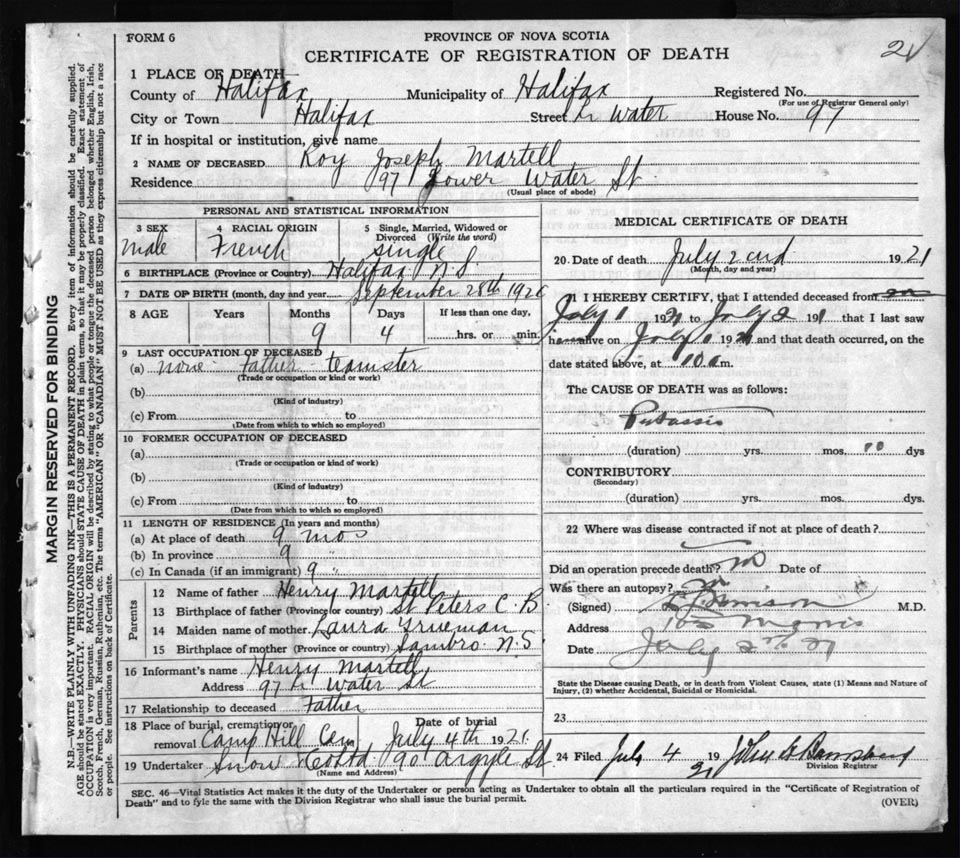 FORM 6
PROVINCE OF NOVA SCOTIA
CERTIFICATE OF REGISTRATION OF DEATH
21
1 PLACE OF DEATH
County of Halifax Municipality of Halifax Registered No.
(For use of Registrar General only)
City or Town Halifax Street L Water House No. 97
If in hospital or institution, give name
2 NAME OF DECEASED Roy Joseph Martell
Residence 97 Lower Water St.
(Usual place of abode)
PERSONAL AND STATISTICAL INFORMATION
3 SEX male
4 RACIAL ORIGIN French
5 Single, Married, Widowed or Divorced (Write the word) Single
6 BIRTHPLACE (Province or Country) Halifax N.S.
7 DATE OF BIRTH (month, day and year) September 28th 1920
8 AGE Years Months Days If less than one day,
9 4 hrs. or min
9 LAST OCCUPATION OF DECEASED
(a) none Father teamster
(Trade or occupation or kind of work)
(b)
(Kind of industry)
(c) From to
(Date from which to which so employed)
10 FORMER OCCUPATION OF DECEASED
(a)
(Trade or occupation or kind of work)
(b)
(Kind of industry)
(c) From to
(Date from which to which so employed)
11 LENGTH OF RESIDENCE (In years and months)
(a) At place of death 9 mos
(b) In province 9 "
(c) In Canada (if an immigrant) 9 "
Parents
12 Name of father Henry Martell
13 Birthplace of father (Province or country) St Peters C.B.
14 Maiden name of mother Laura Trueman
15 Birthplace of mother (Province or country) Sambro N.S.
16 Informant's name Henry Martell
Address 97 L Water St
17 Relationship to deceased Father
18 Place of burial, cremation or removal Camp Hill Cem Date of burial July 4th 1921
19 Undertaker Snow 90 Argyle St
(Name and Address)
MEDICAL CERTIFICATE OF DEATH
20 Date of death July 2nd 1921
(Month, day and year)
21 I HEREBY CERTIFY, that I attended deceased from
July 1 1921 to July 2 191 that I last saw
h alive on July 1 1921 and that death occurred, on the
date stated above, at 10 a m.
The CAUSE OF DEATH was as follows:
Pertussis
(duration) yrs. mos. 10 dys
CONTRIBUTORY
(Secondary)
(duration) yrs. mos. dys.
22 Where was disease contracted if not at place of death?
Did an operation precede death? no Date of
Was there an autopsy? no
(Signed) M.D.
Address 103 Morris
Date July 2nd 21
State the Disease causing Death, or in death from Violent Causes, state (1) Means and Nature of Injury, (2) whether Accidental, Suicidal or Homicidal.
23
24 Filed July 4 1921 John
Division Registrar
SEC. 46—Vital Statistics Act makes it the duty of the Undertaker or person acting as Undertaker to obtain all the particulars required in the "Certificate of Registration of
Death" and to fyle the same with the Division Registrar who shall issue the burial permit.
(OVER)
MARGIN RESERVED FOR BINDING
N.B.—WRITE PLAINLY WITH UNFADING INK—THIS IS A PERMANENT RECORD. Every item of information should be carefully supplied.
AGE should be stated EXACTLY. PHYSICIANS should STATE CAUSE OF DEATH in plain terms, so that it may be properly classified. Exact statement of
OCCUPATION is very important. RACIAL ORIGIN will be described by stating to what people or tongue the deceased person belonged whether English, Irish,
Scotch, French, German, Russian, Ruthenian, etc. The terms "AMERICAN" OR "CANADIAN" MUST NOT BE USED as they express citizenship but not a race
or people. See instructions on back of Certificate.